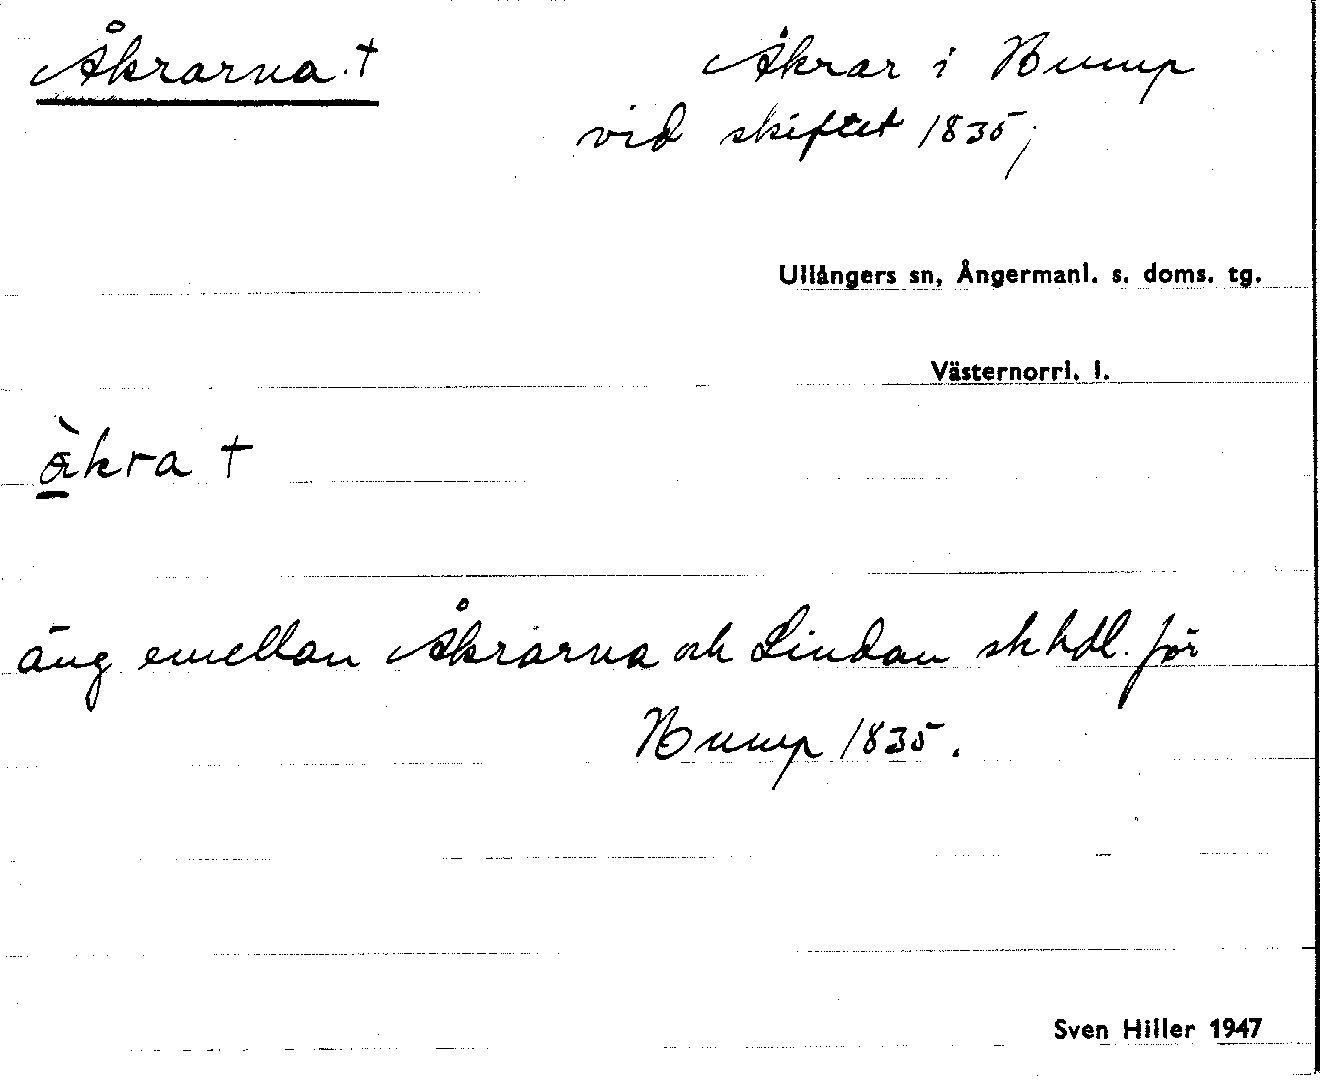 Åkrarna. †
Åkrar i Hump
vid skiftet 1835;
Ullångers sn, Ångermanl. s. doms. tg.
Västernorrl. l.
å̀kra †
äng emellan Åkrarna och Lindan sk hdl. för
Hump 1835.
Sven Hiller 1947